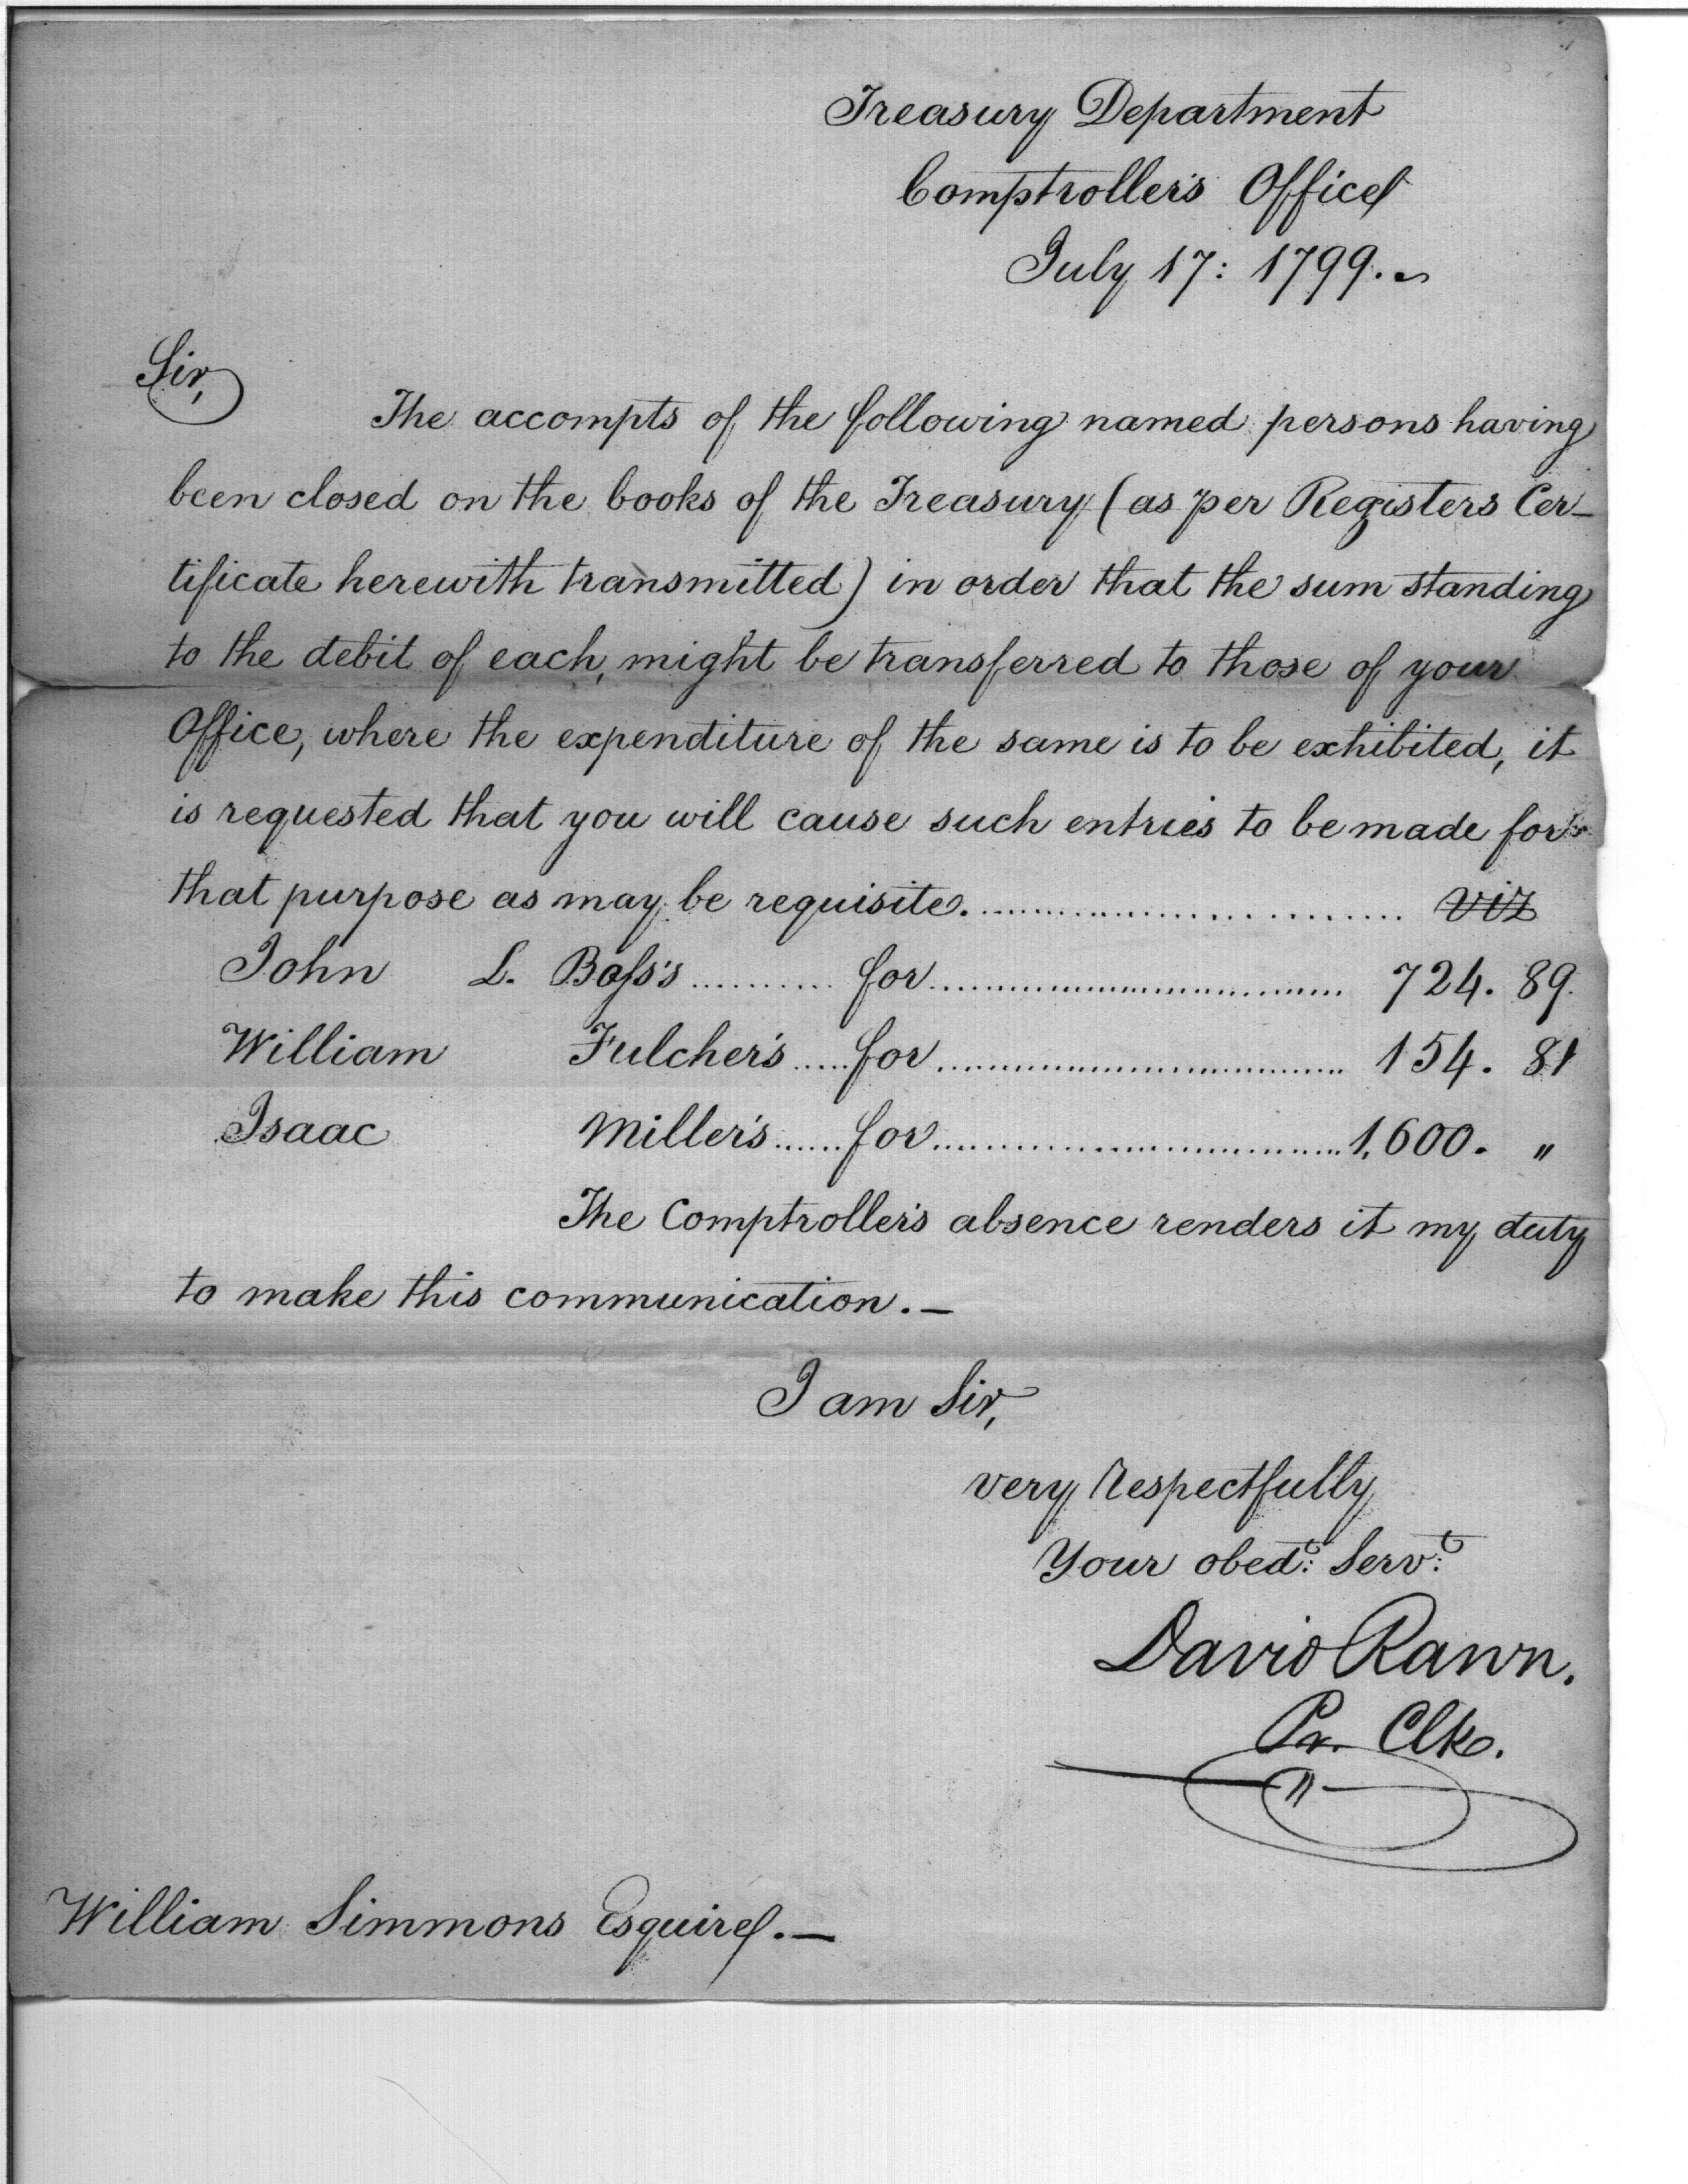 Treasury Department
Comptroller's Office
July 17: 1799.
Sir,
The accompts of the following named persons having
been closed on the books of the Treasury (as per Registers Cer-
tificate herewith transmitted) in order that the sum standing
to the debit of each, might be transferred to those of your
Office, where the expenditure of the same is to be exhibited, it
is requested that you will cause such entries to be made for
that purpose as may be requisite. .......... viz
John L. Baſs's .......... for .......... 724. 89
William Fulcher's ..... for .......... 154. 81
Isaac Miller's ...... for .......... 1,600. "
The Comptroller's absence renders it my duty
to make this communication. —
I am Sir,
very respectfully
Your obedt: Servt:
David Rawn.
Pr. Clk.
William Simmons Esquire. —